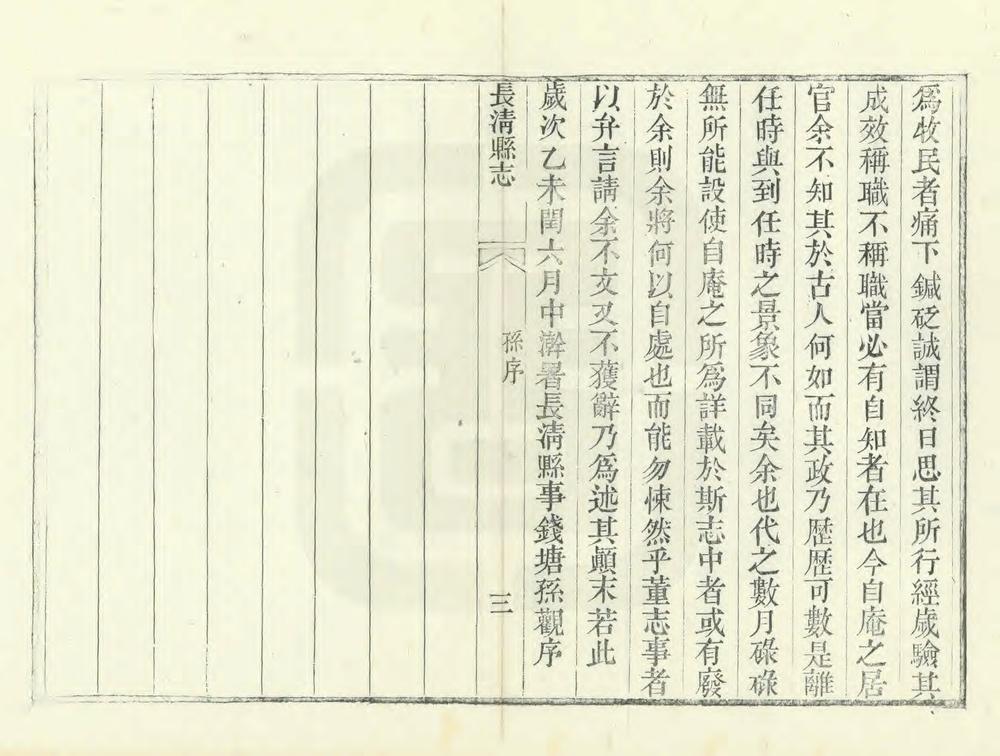 爲牧民者痛下鍼砭誠謂終日思其所行經歲驗其
成效稱職不稱職當必有自知者在也今自庵之居
官余不知其於古人何如而其政乃歷歷可數是離
任時與到任時之景象不同矣余也代之數月碌碌
無所能設使自庵之所爲詳載於斯志中者或有廢
於余則余將何以自處也而能勿悚然乎董志事者
以弁言請余不文又不獲辭乃爲述其顚末若此
歲次乙未閏六月中澣署長淸縣事錢塘孫觀序
長淸縣志
孫序
三